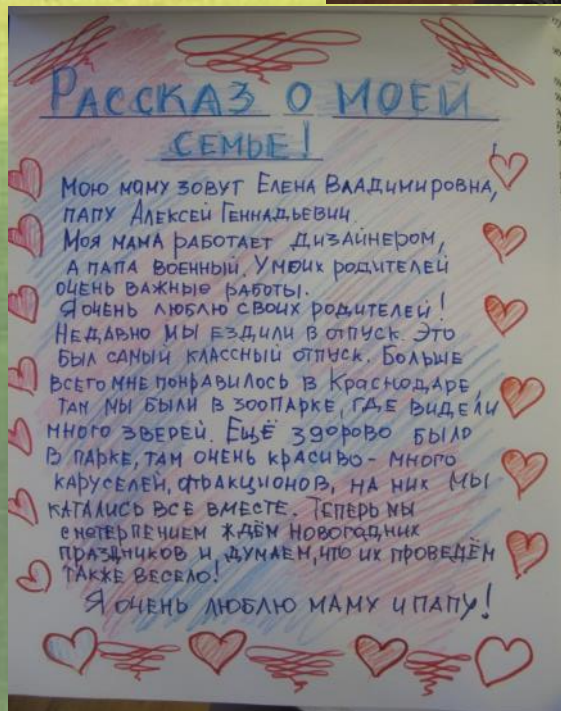 РАССКАЗ О МОЕЙ
СЕМЬЕ!
МОЮ МАМУ ЗОВУТ ЕЛЕНА ВЛАДИМИРОВНА,
ПАПУ АЛЕКСЕЙ ГЕННАДЬЕВИЧ.
МОЯ МАМА РАБОТАЕТ ДИЗАЙНЕРОМ,
А ПАПА ВОЕННЫЙ. У МОИХ РОДИТЕЛЕЙ
ОЧЕНЬ ВАЖНЫЕ РАБОТЫ.
Я ОЧЕНЬ ЛЮБЛЮ СВОИХ РОДИТЕЛЕЙ!
НЕДАВНО МЫ ЕЗДИЛИ В ОТПУСК. ЭТО
БЫЛ САМЫЙ КЛАССНЫЙ ОТПУСК. БОЛЬШЕ
ВСЕГО МНЕ ПОНРАВИЛОСЬ В КРАСНОДАРЕ,
ТАМ МЫ БЫЛИ В ЗООПАРКЕ, ГДЕ ВИДЕЛИ
МНОГО ЗВЕРЕЙ. ЕЩЁ ЗДОРОВО БЫЛО
В ПАРКЕ, ТАМ ОЧЕНЬ КРАСИВО - МНОГО
КАРУСЕЛЕЙ, АТРАКЦИОНОВ, НА НИХ МЫ
КАТАЛИСЬ ВСЕ ВМЕСТЕ. ТЕПЕРЬ МЫ
С НЕТЕРПЕНИЕМ ЖДЁМ НОВОГОДНИХ
ПРАЗДНИКОВ И ДУМАЕМ, ЧТО ИХ ПРОВЕДЁМ
ТАКЖЕ ВЕСЕЛО!
Я ОЧЕНЬ ЛЮБЛЮ МАМУ И ПАПУ!